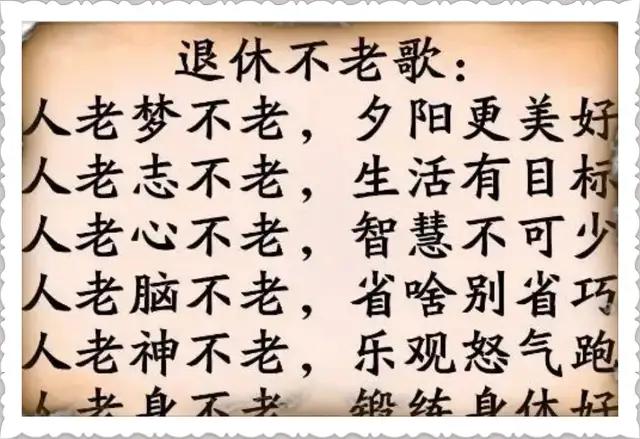 退休不老歌：
人老梦不老，夕阳更美好
人老志不老，生活有目标
人老心不老，智慧不可少
人老脑不老，省啥别省巧
人老神不老，乐观怒气跑
人老身不老，锻练身体好